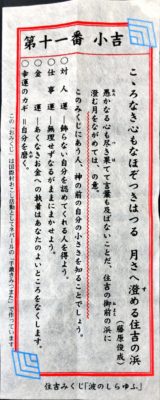 第十一番 小吉
こゝろなき心もなほぞつきはつる 月さへ澄める住吉の浜
(藤原俊成)
愚かなる心も尽き果てて言葉も及ばないことだ、住吉の御前の浜に
澄む月をながめては、の意。
このみくじにあう人、神の前の自分の小ささを知ることでしょう。
○対人運―飾らない自分を認めてくれる人を得よう。
○仕事運―無理せずなるがままにまかせよう。
○金運―あくなきお金への執着はあなたのよいところをなくします。
○幸運のカギ=自分を磨く。
この「おみくじ」は国際村おこし活動としてネパールの「手漉きみつまた」で作っています。
住吉みくじ「波のしらゆふ」